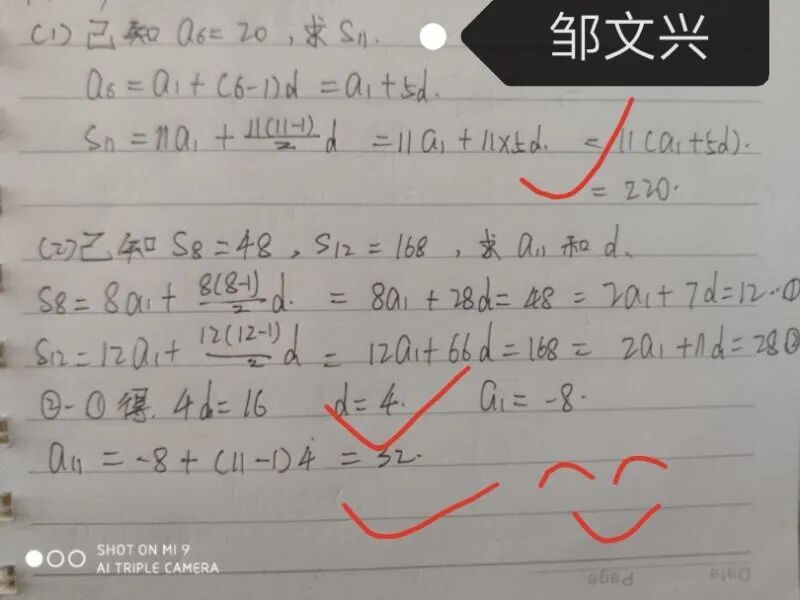 邹文兴
(1)已知 a6=20,求S11.
a6=a1+(6-1)d=a1+5d.
S11=11a1+11(11-1)/2 d =11a1+11×5d. =11(a1+5d).
=220.
(2)已知 S8=48,S12=168,求 a11 和 d、
S8=8a1+8(8-1)/2 d. = 8a1+28d=48 = 2a1+7d=12··①
S12=12a1+12(12-1)/2 d = 12a1+66d=168= 2a1+11d=28②
②-①得. 4d=16 d=4. a1=-8.
a11=-8+(11-1)4=32.
SHOT ON MI 9
AI TRIPLE CAMERA
Date
Page